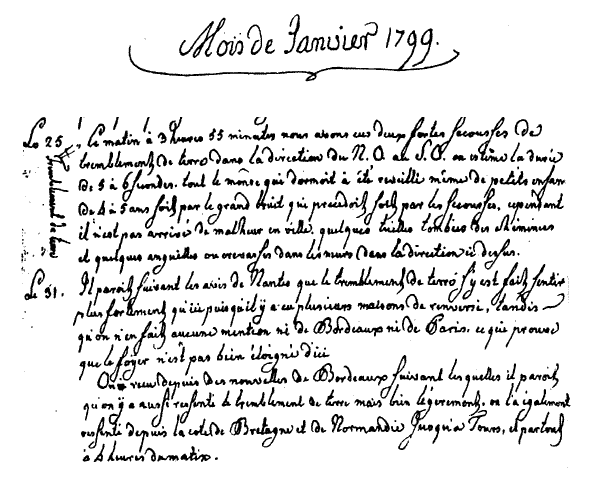 Mois de Janvier 1799.
Le 25, Ce matin à 3 heures 55 minutes nous avons eu deux fortes secousses de
tremblement de terre dans la direction du N. O. au S. E. on estime la durée
de 5 à 6 secondes. tout le monde qui dormoit à été reveillé même de petits enfan
de 4 à 5 ans soit par le grand bruit qui precedoit soit par les secousses, cependant
il n'est pas arrivé de malheur en ville, quelques tuiles tombées des cheminées
et quelques anguilles ou crevasses dans les murs dans la direction ci dessus.
tremblement de terre
Le 31. Il paroit suivant les avis de Nantes que le tremblement de terre s'y est fait sentir
plus fortement qu'ici puisqu'il y a eu plusieurs maisons de renversé, tandis
qu'on n'en fait aucune mention ni de Bordeaux ni de Paris, ce qui prouve
que le foyer n'est pas bein éloignée d'ici
On a reçu depuis des nouvelles de Bordeaux suivant lesquelles il paroit
qu'on y a aussi ressenti le tremblement de terre mais bien légerement, on l'a également
ressenti depuis la cote de Bretagne et de Normandie jusqu'a Tours, et partout
à 4 heures du matin.